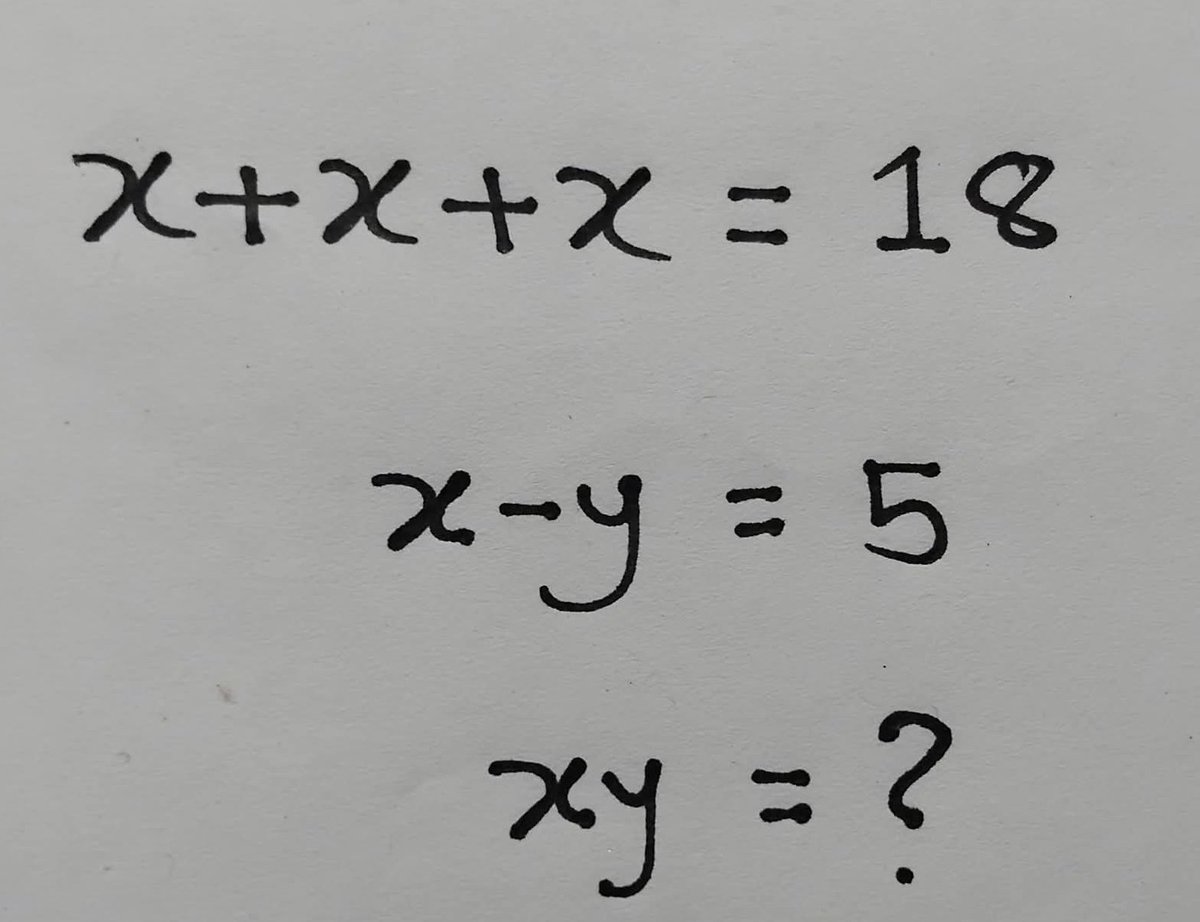 x+x+x = 18
x-y = 5
xy = ?